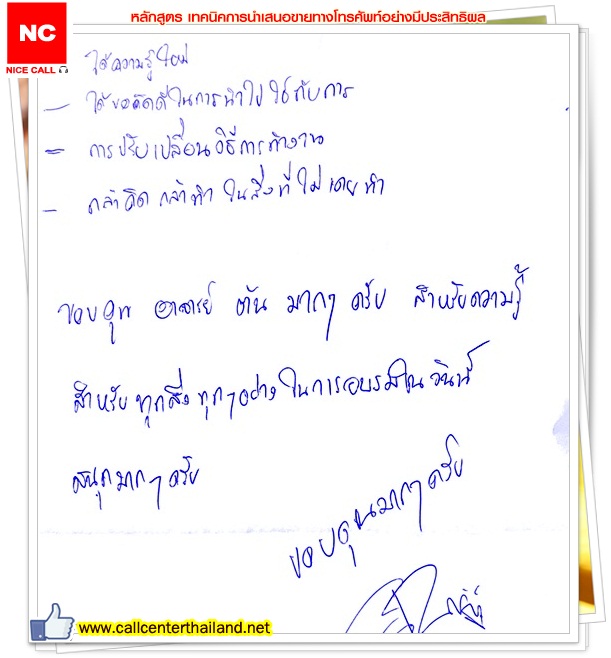 หลักสูตร เทคนิคการนำเสนอขายทางโทรศัพท์อย่างมีประสิทธิผล
NC
NICE CALL
ได้ความรู้ใหม่
– ได้ข้อคิดดีในการนำไปใช้กับการ
– การปรับเปลี่ยนวิธีการทำงาน
– กล้าคิด กล้าทำ ในสิ่งที่ไม่เคยทำ
ขอบคุณ อาจารย์ ต้น มากๆ ครับ สำหรับความรู้
สำหรับทุกสิ่งทุกๆอย่าง ในการอบรมในวันนี้
สนุกมากๆ ครับ
ขอบคุณมากๆ ครับ
www.callcenterthailand.net